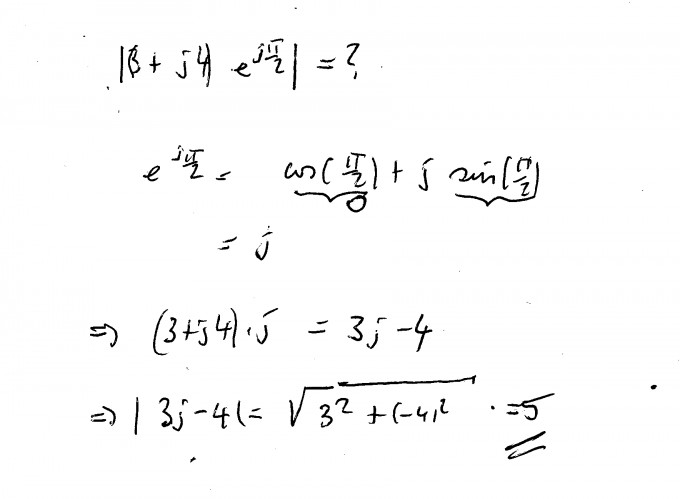 |(3 + j4) e^{jπ/2}| = ?
e^{jπ/2} = cos(π/2) + j sin(π/2)
0
= j
=> (3+j4)·j = 3j -4
=> |3j-4| = √(3² + (-4)²) = 5